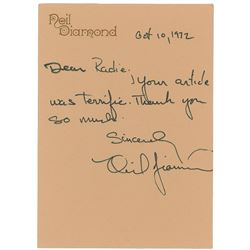 Neil
Diamond
Oct 10, 1972
Dear Radie,
Your article
was terrific. Thank you
so much.
Sincerely
Neil Diamond